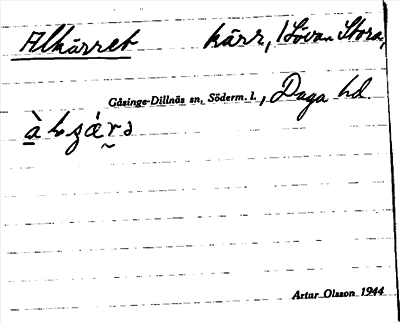 Alkärret kärr, 1 Lövan Stora,
Gåsinge-Dillnäs sn, Söderm. l., Daga hd.
Artur Olsson 1944